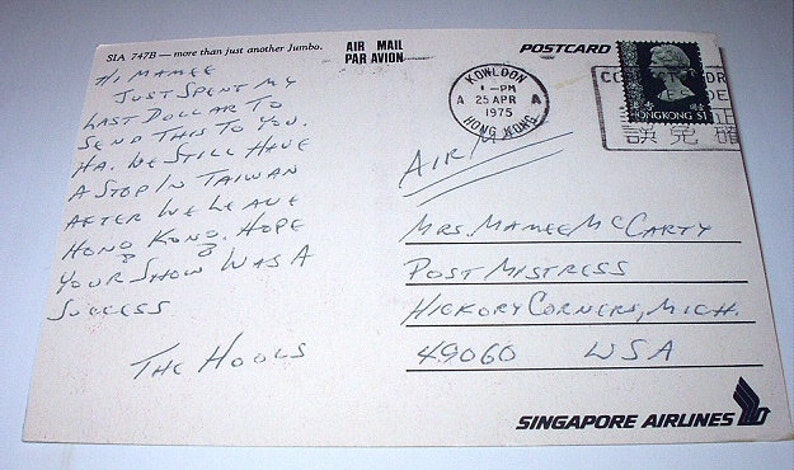 SIA 747B — more than just another Jumbo.
AIR MAIL
PAR AVION
POSTCARD
HI MAMEE
JUST SPENT MY
LAST DOLLAR TO
SEND THIS TO YOU.
HA. WE STILL HAVE
A STOP IN TAIWAN
AFTER WE LEAVE
HONG KONG. HOPE
YOUR SHOW WAS A
SUCCESS
THE HOOLS
KOWLOON
1 –PM
A 25 APR A
1975
HONG KONG
HONG KONG $1
誤免確
AIR
MRS. MAMEE MCCARTY
POST MISTRESS
HICKORY CORNERS, MICH.
49060 USA
SINGAPORE AIRLINES